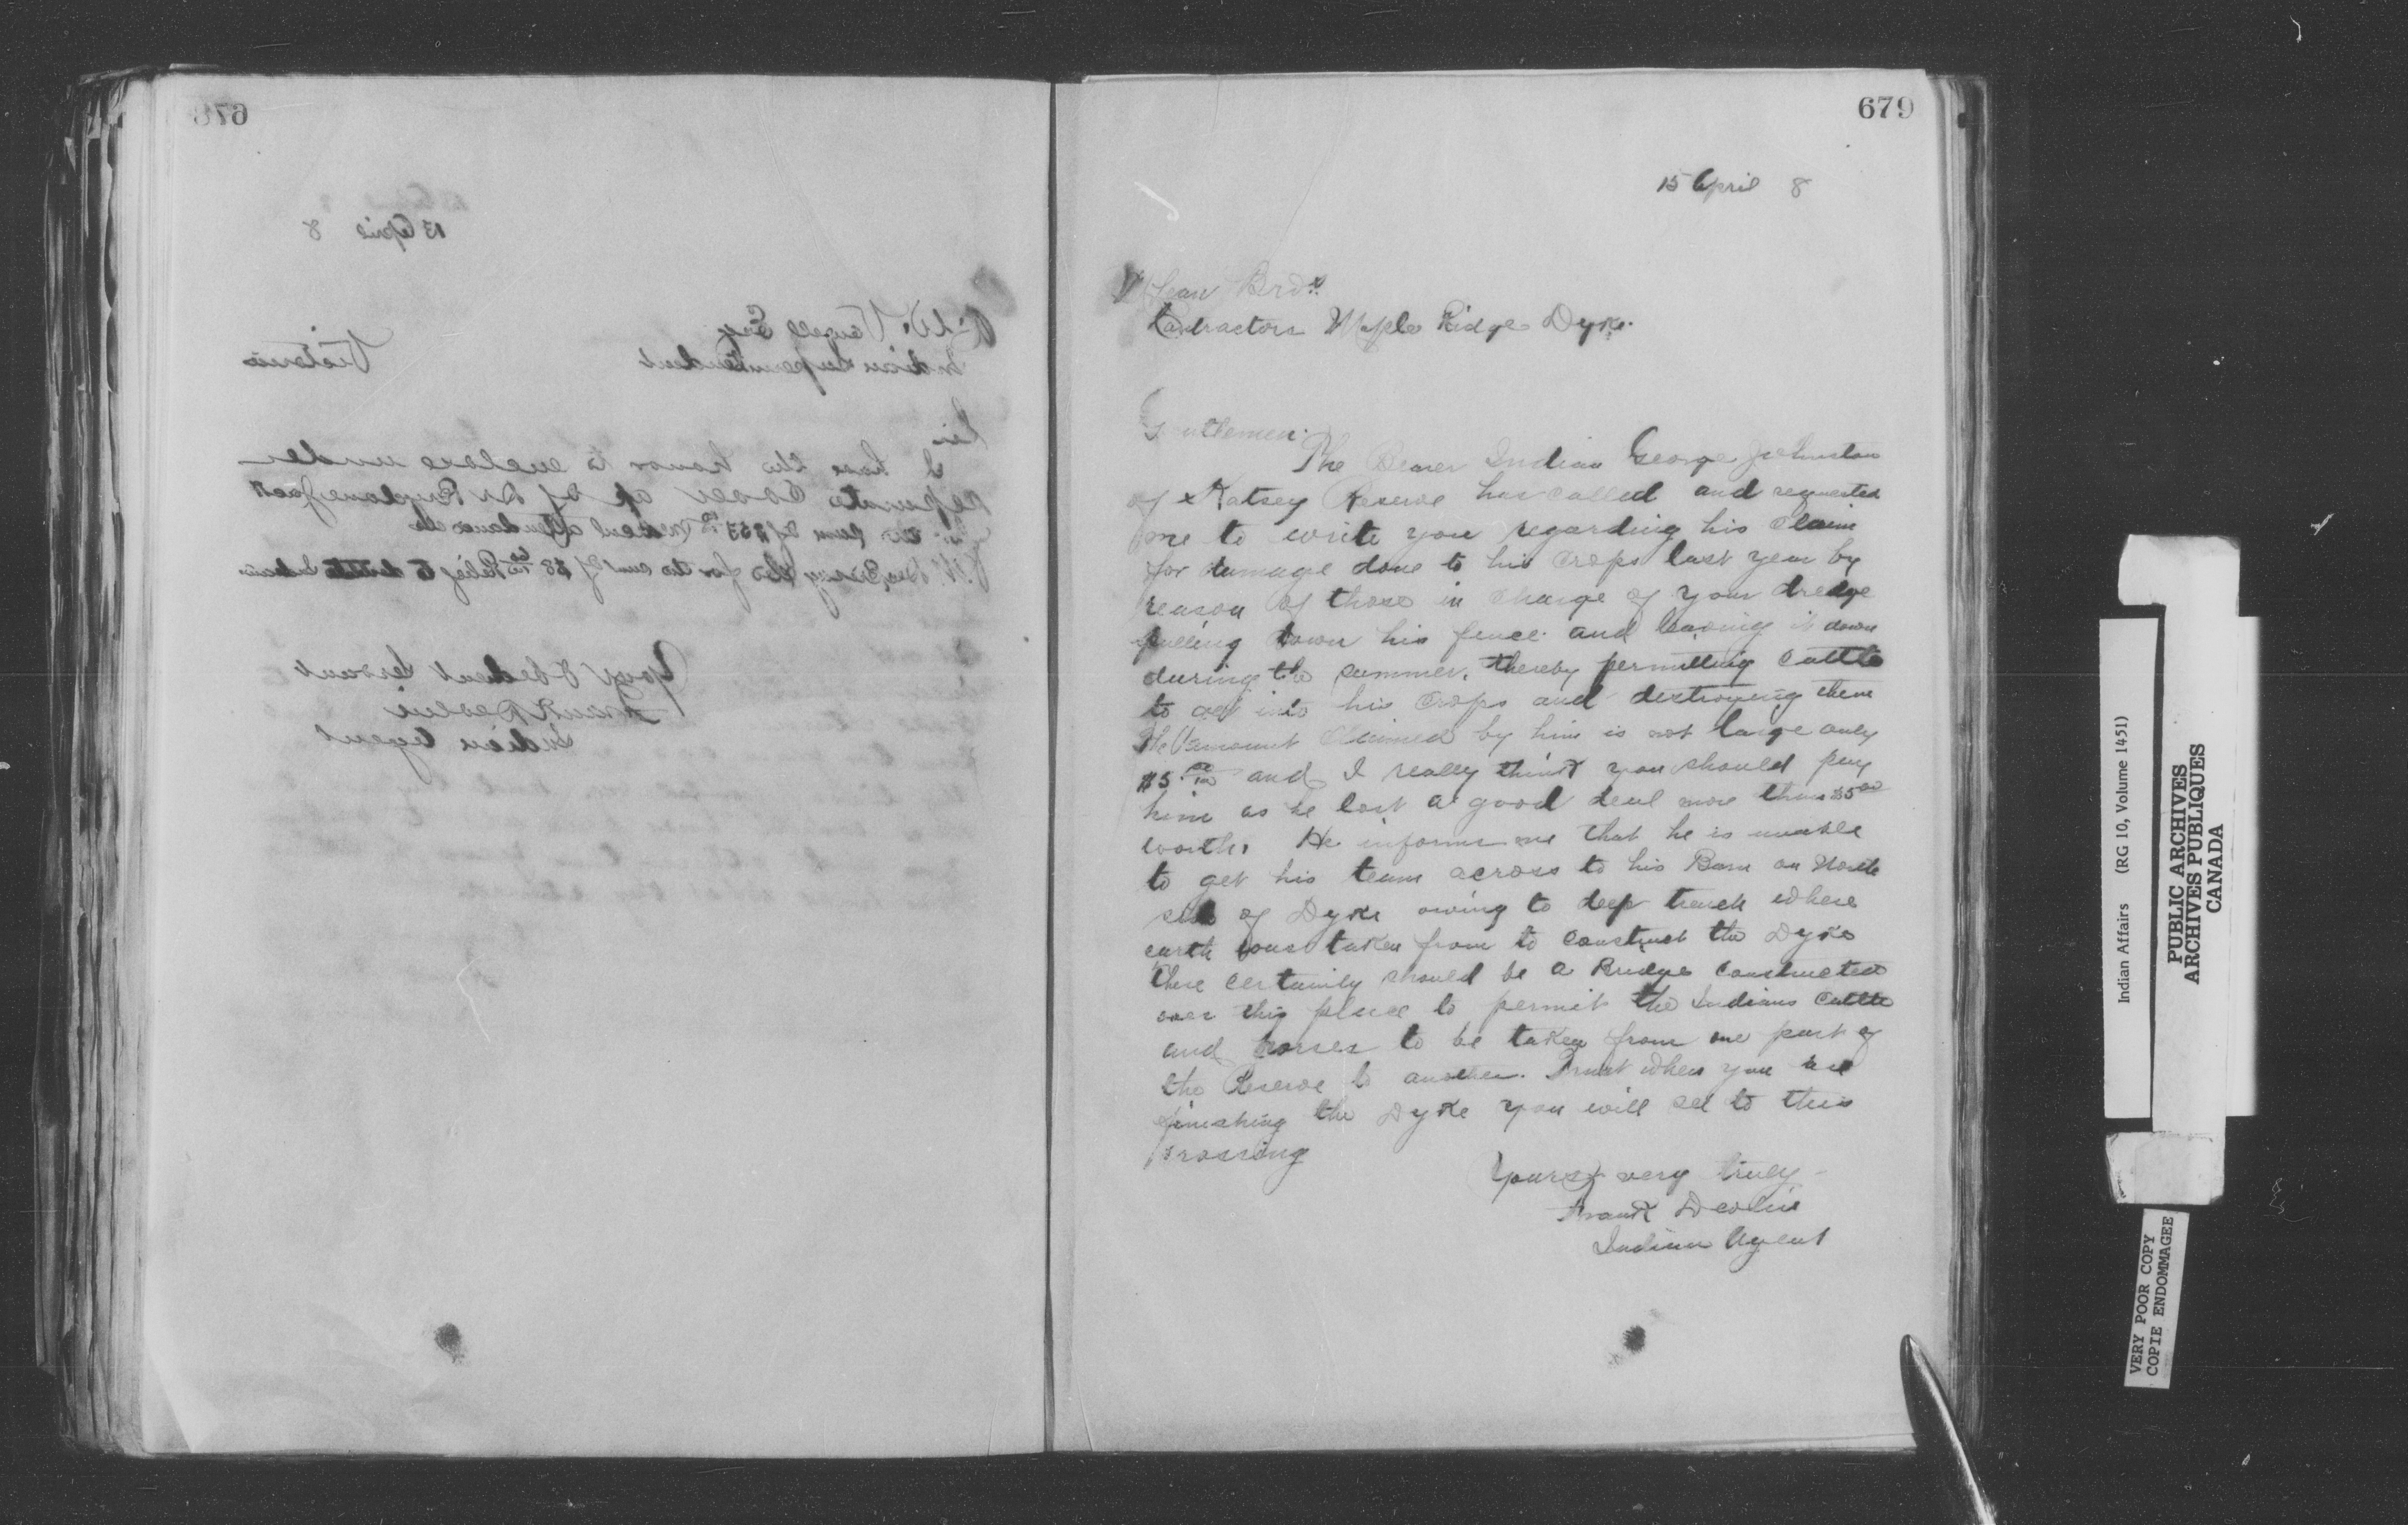 678
13 April 8
A. W. Vowell Esq
Indian Superintendent Victoria
Sir
I have the honor to enclose under
separate cover a/c of Dr
the sum of medical attendance etc
for the sum of $8 Relief to destitute Indian
Your Obedient Servant
Frank Devlin
Indian Agent
679
15 April 8
McLean Bros.
Contractors Maple Ridge Dyke.
Gentlemen.
The Bearer Indian George Johnston
of Katsey Reserve has called and requested
me to write you regarding his claim
for damage done to his crops last year by
reason of those in charge of your dredge
pulling down his fence and leaving it down
during the summer, thereby permitting cattle
to get into his crops and destroying them
The amount claimed by him is not large only
$5. and I really think you should pay
him as he lost a good deal more than $5 00
worth. He informs me that he is unable
to get his team across to his Barn on North
side of Dyke owing to deep trench where
earth was taken from to construct the Dyke
there certainly should be a Bridge constructed
over this place to permit the Indians cattle
and horses to be taken from one part of
the Reserve to another. Trust when you are
finishing the Dyke you will see to this
crossing
Yours very truly
Frank Devlin
Indian Agent
Indian Affairs (RG 10, Volume 1451)
PUBLIC ARCHIVES
ARCHIVES PUBLIQUES
CANADA
VERY POOR COPY
COPIE ENDOMMAGEE